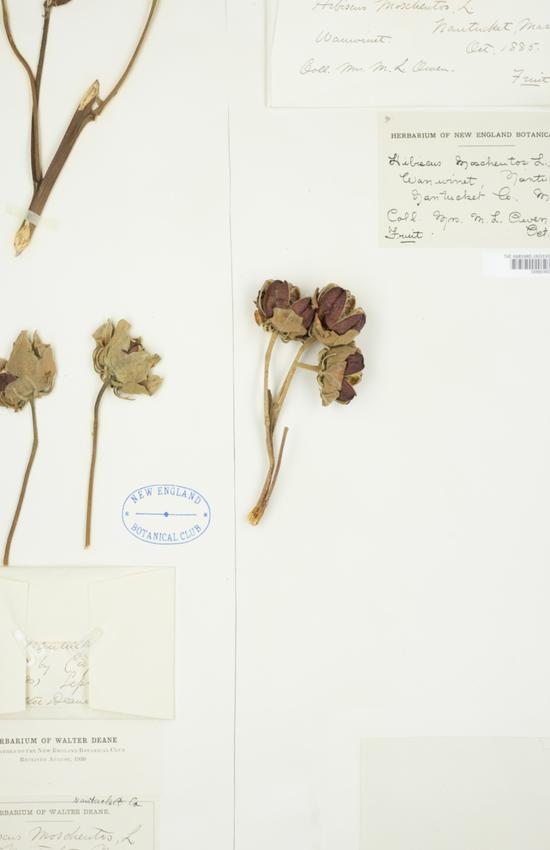 Hibiscus Moscheutos, L
Nantucket, Mas
Wauwinet.
Oct. 1885.
Coll. Mrs. M. L. Owen.
Fruit
HERBARIUM OF NEW ENGLAND BOTANICA
Hibiscus Moscheutos L.
Wauwinet, Nantu
Nantucket Co. M
Coll. Mrs. M. L. Owen
Fruit. Oct.
THE HARVARD UNIVER
NEW ENGLAND
BOTANICAL CLUB
by
RBARIUM OF WALTER DEANE
TO THE NEW ENGLAND BOTANICAL CLUB
RECEIVED AUGUST, 1930
Nantucket Co.
RBARIUM OF WALTER DEANE.
scus Moscheutos, L